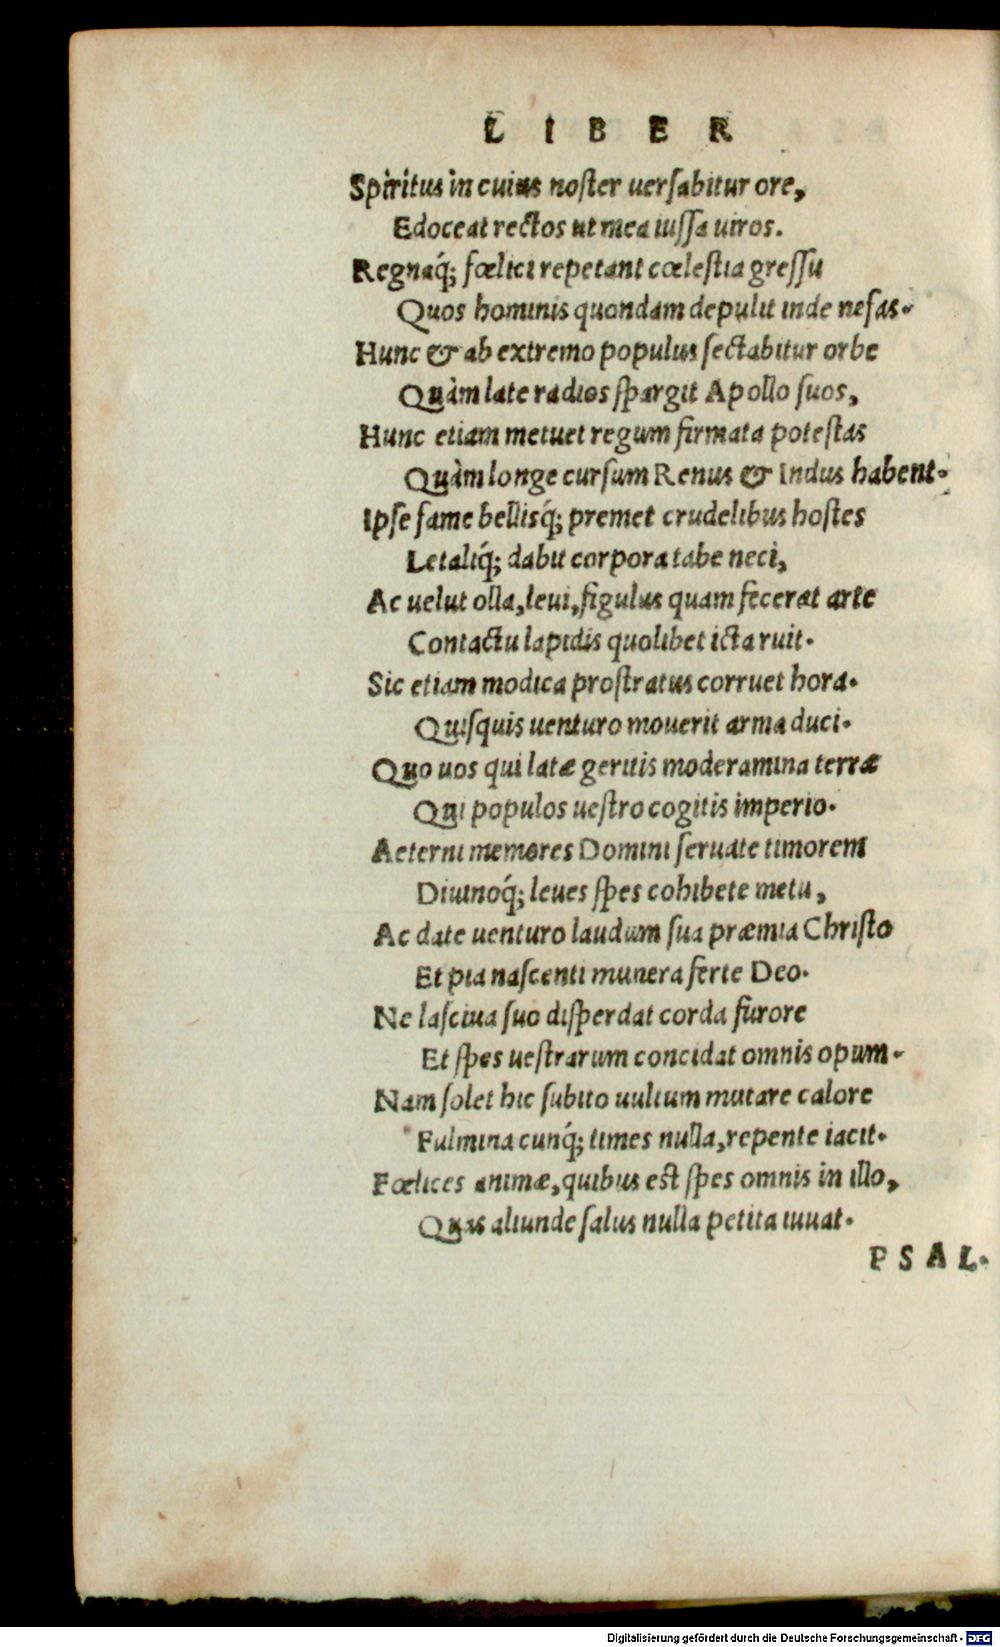 LIBER
Spiritus in cuius noſter uerſabitur ore,
Edoceat rectos ut mea iuſſa uiros.
Regnaq́; fœlici repetant cœleſtia greſſu
Quos hominis quondam depulit inde nefas.
Hunc & ab extremo populus ſectabitur orbe
Quàm late radios ſpargit Apollo ſuos,
Hunc etiam metuet regum firmata poteſtas
Quàm longe curſum Renus & Indus habent.
Ipſe fame bellisq́; premet crudelibus hoſtes
Letaliq́; dabit corpora tabe neci,
Ac uelut olla, leui, figulus quam fecerat arte
Contactu lapidis quolibet icta ruit.
Sic etiam modica proſtratus corruet hora.
Quiſquis uenturo mouerit arma duci.
Quo uos qui latæ geritis moderamina terræ
Qui populos ueſtro cogitis imperio.
Aeterni memores Domini ſeruate timorem
Diuinoq́; leues ſpes cohibete metu,
Ac date uenturo laudum ſua præmia Chriſto
Et pia naſcenti munera ferte Deo.
Ne laſciua ſuo diſperdat corda furore
Et ſpes ueſtrarum concidat omnis opum.
Nam ſolet hic ſubito uultum mutare calore
Fulmina cunq́; times nulla, repente iacit.
Fœlices animæ, quibus eſt ſpes omnis in illo,
Quas aliunde ſalus nulla petita iuuat.
PSAL.
Digitalisierung gefördert durch die Deutsche Forschungsgemeinschaft - DFG